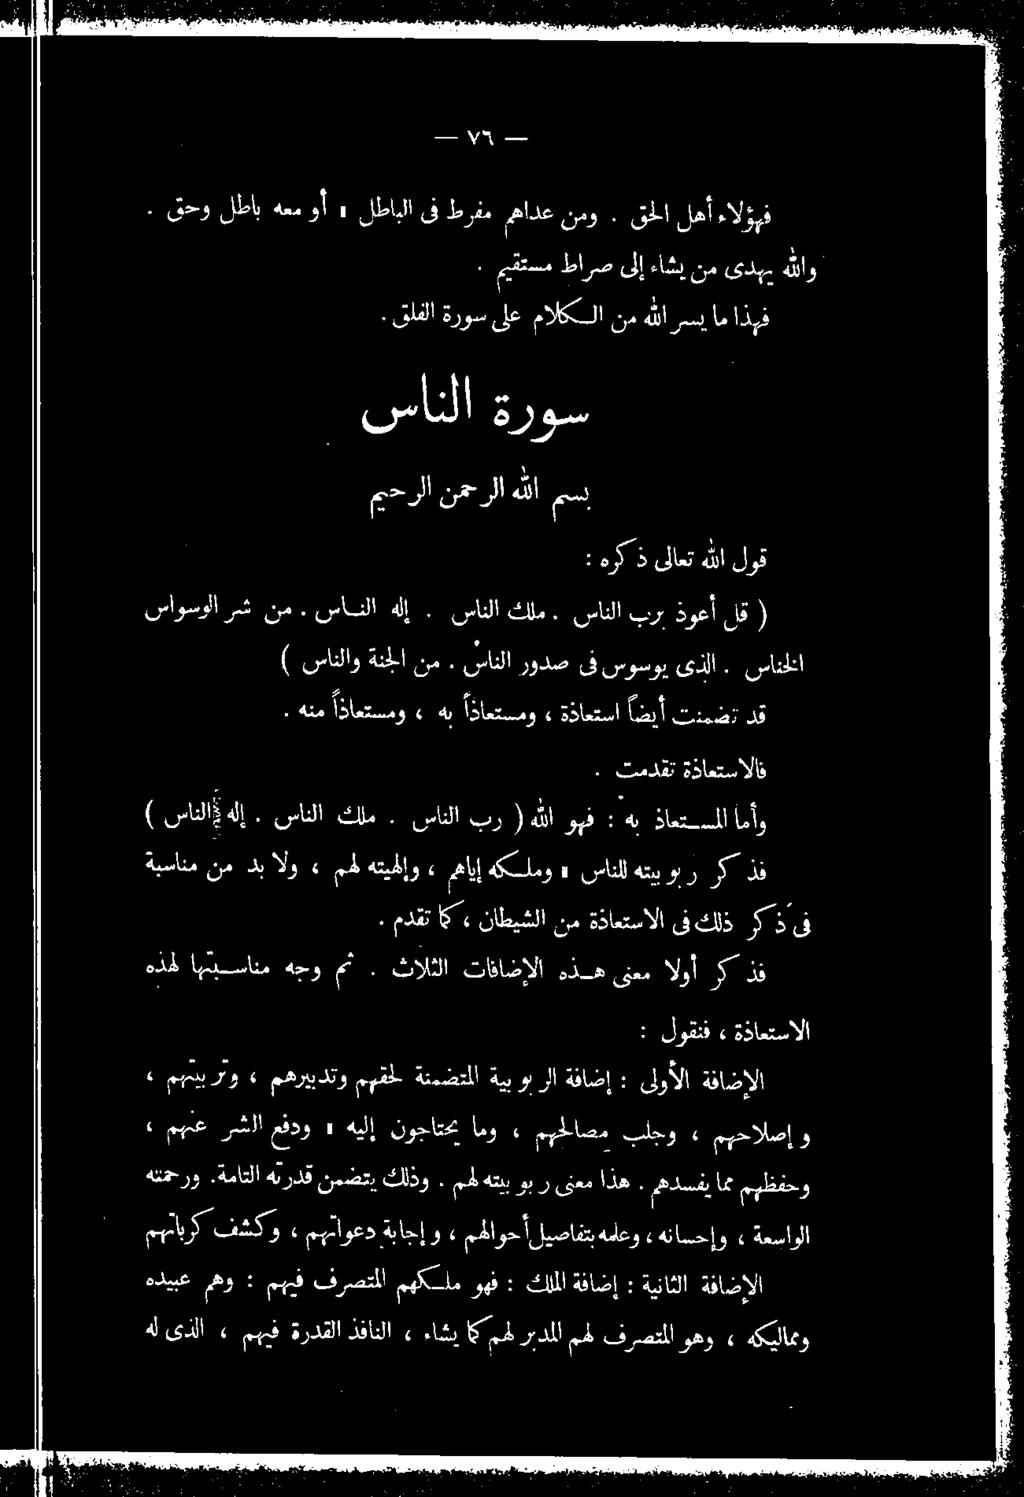 — ٧٦ —
فهؤلاء أهل الحق . ومن عداهم مفرط فى الباطل ، أو معه باطل وحق .
والله يهدى من يشاء إلى صراط مستقيم .
فهذا ما يسر الله من الكلام على سورة الفلق .
سورة الناس
بسم الله الرحمن الرحيم
قول الله تعالى ذكره :
( قل أعوذ برب الناس . ملك الناس . إله الناس . من شر الوسواس
الخناس . الذى يوسوس فى صدور الناس . من الجنة والناس )
قد تضمنت أيضاً استعاذة ، ومستعاذاً به ، ومستعاذاً منه .
فالاستعاذة تقدمت .
وأما المستعاذ به : فهو الله ( رب الناس . ملك الناس . إله الناس )
فذكر ربوبيته للناس ، وملكه إياهم ، وإلهيته لهم ، ولا بد من مناسبة
فى ذكر ذلك فى الاستعاذة من الشيطان ، كما تقدم .
فذكر أولا معنى هذه الإضافات الثلاث . ثم وجه مناسبتها لهذه
الاستعاذة ، فنقول :
الإضافة الأولى : إضافة الربوبية المتضمنة لخقهم وتدبيرهم ، وتربيتهم ،
وإصلاحهم ، وجلب مصالحهم ، وما يحتاجون إليه ، ودفع الشر عنهم ،
وحفظهم مما يفسدهم . هذا معنى ربوبيته لهم . وذلك يتضمن قدرته التامة . ورحمته
الواسعة ، وإحسانه ، وعلمه بتفاصيل أحوالهم ، وإجابة دعواتهم ، وكشف كرباتهم
الإضافة الثانية : إضافة الملك : فهو ملكهم المتصرف فيهم : وهم عبيده
ومماليكه ، وهو المتصرف لهم المدبر لهم كما يشاء ، النافذ القدرة فيهم ، الذى له